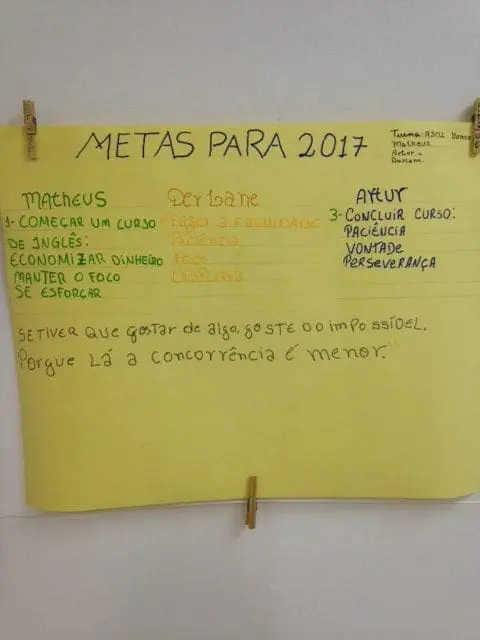 METAS PARA 2017
Turma: A302
Matheus
Artur
Darlane
MATHEUS
1- COMEÇAR UM CURSO
DE INGLÊS:
ECONOMIZAR DINHEIRO
MANTER O FOCO
SE ESFORÇAR
Derlane
Fazer a FACULDADE
Paciência
Foco
Disciplina
Artur
3- CONCLUIR CURSO:
PACIÊNCIA
VONTADE
PERSEVERANÇA
SETIVER QUE gostar de algo, goSTE DO imPOSSÍDEL.
Porque Lá a concorrência é menor."